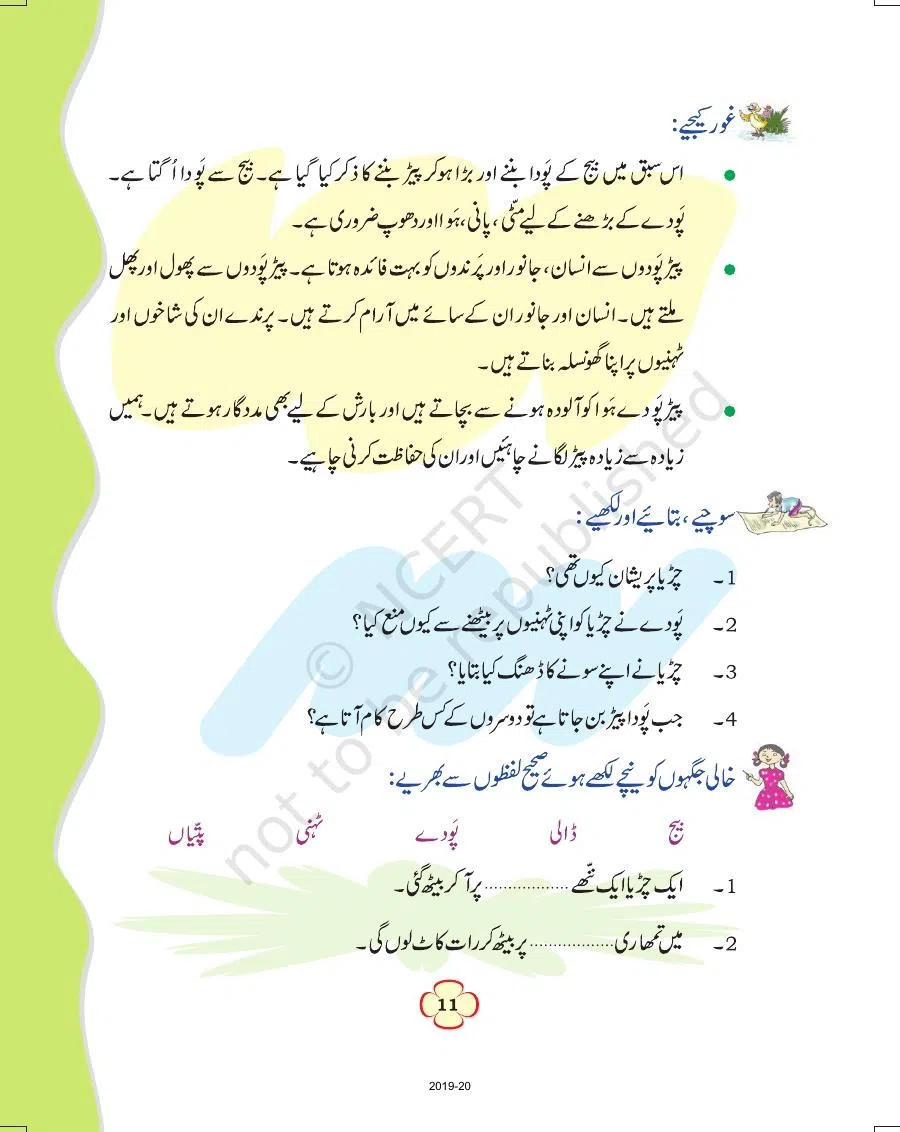 غور کیجیے:
اس سبق میں بیج کے پَودا بننے اور بڑا ہوکر پیڑ بننے کا ذکر کیا گیا ہے۔ بیج سے پَودا اُگتا ہے۔
پَودے کے بڑھنے کے لیے مٹّی، پانی، ہَوا اور دھوپ ضروری ہے۔
پیڑ پَودوں سے انسان، جانور اور پَرندوں کو بہت فائدہ ہوتا ہے۔ پیڑ پَودوں سے پھول اور پھل
ملتے ہیں۔ انسان اور جانور ان کے سائے میں آرام کرتے ہیں۔ پرندے ان کی شاخوں اور
ٹہنیوں پر اپنا گھونسلہ بناتے ہیں۔
پیڑ پَودے ہَوا کو آلودہ ہونے سے بچاتے ہیں اور بارش کے لیے بھی مددگار ہوتے ہیں۔ ہمیں
زیادہ سے زیادہ پیڑ لگانے چاہئیں اور ان کی حفاظت کرنی چاہیے۔
سوچیے، بتائیے اور لکھیے:
1۔ چڑیا پریشان کیوں تھی؟
2۔ پَودے نے چڑیا کو اپنی ٹہنیوں پر بیٹھنے سے کیوں منع کیا؟
3۔ چڑیا نے اپنے سونے کا ڈھنگ کیا بتایا؟
4۔ جب پَودا پیڑ بن جاتا ہے تو دوسروں کے کس طرح کام آتا ہے؟
خالی جگہوں کو نیچے لکھے ہوئے صحیح لفظوں سے بھریے:
بیج ڈالی پَودے ٹہنی پتّیاں
1۔ ایک چڑیا ایک ننّھے .................. پر آ کر بیٹھ گئی۔
2۔ میں تمھاری .................. پر بیٹھ کر رات کاٹ لوں گی۔
11
2019-20
© NCERT
not to be republished